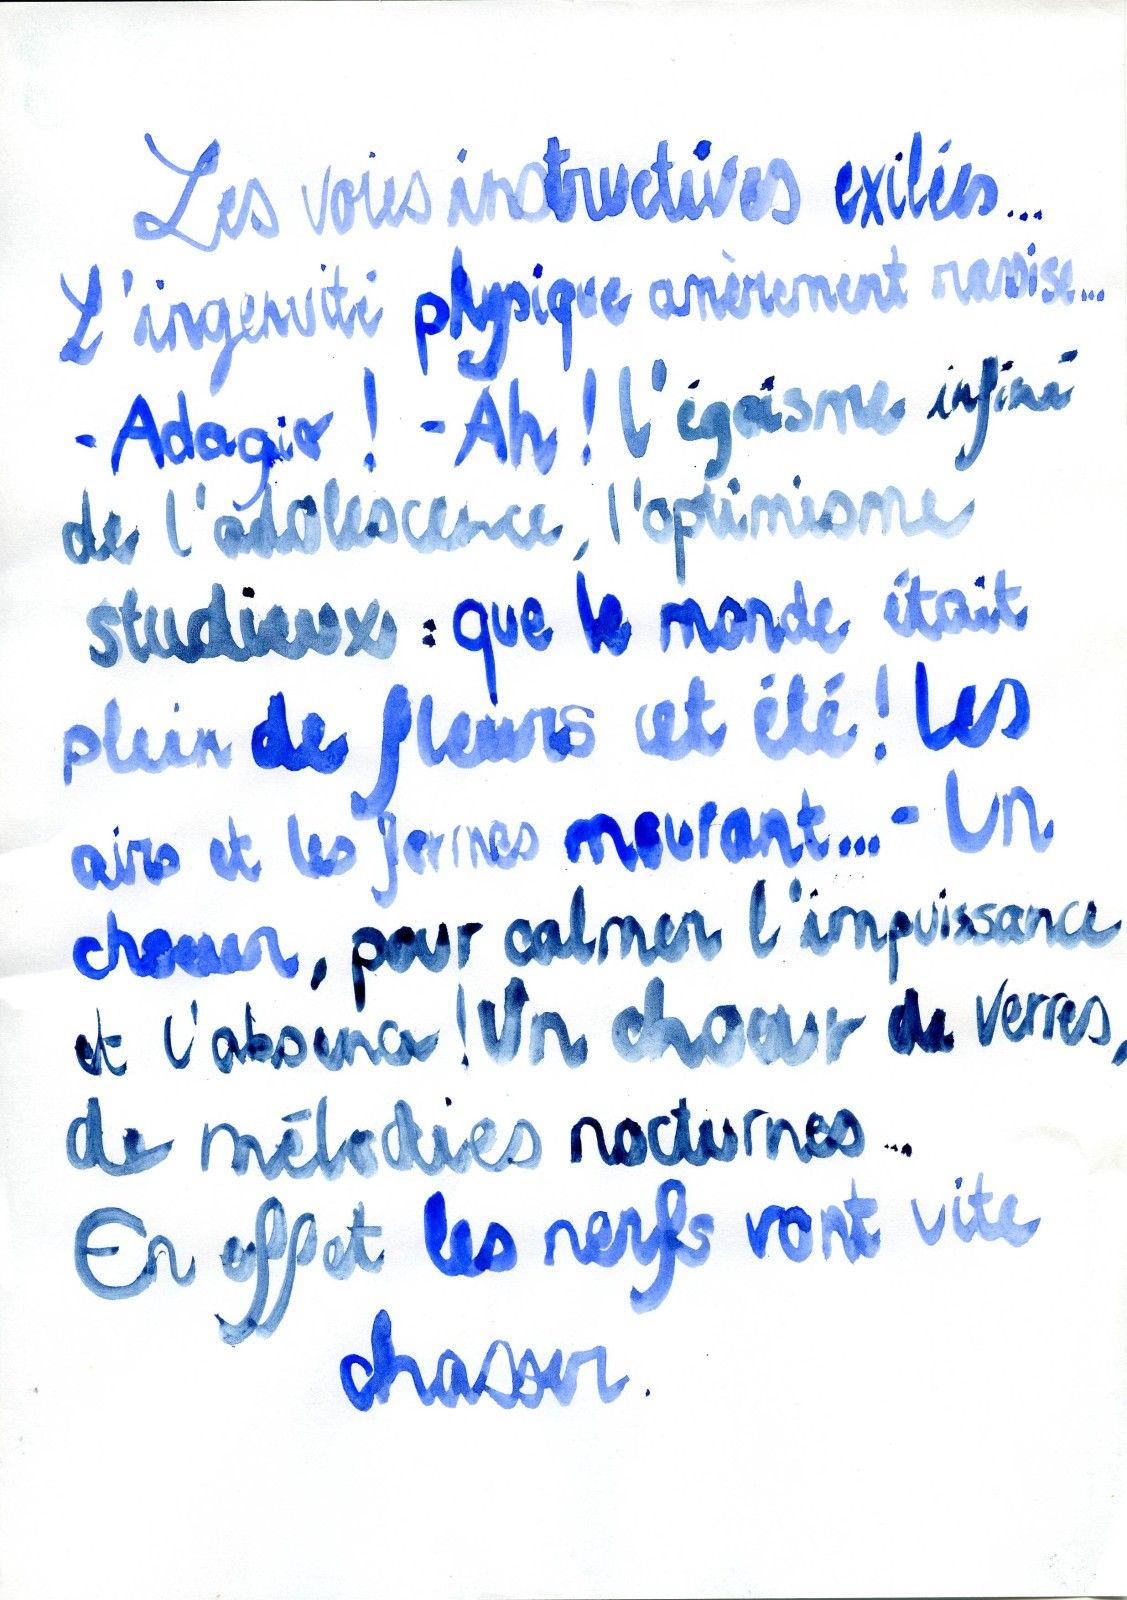 Les voies instructives exilées...
L'ingénuité physique amèrement rassise...
- Adagio ! - Ah ! l'égoïsme infini
de l'adolescence, l'optimisme
studieux : que le monde était
plein de fleurs cet été ! Les
airs et les formes mourant... - Un
choeur, pour calmer l'impuissance
et l'absence ! Un choeur de verres,
de mélodies nocturnes...
En effet les nerfs vont vite
chasser.